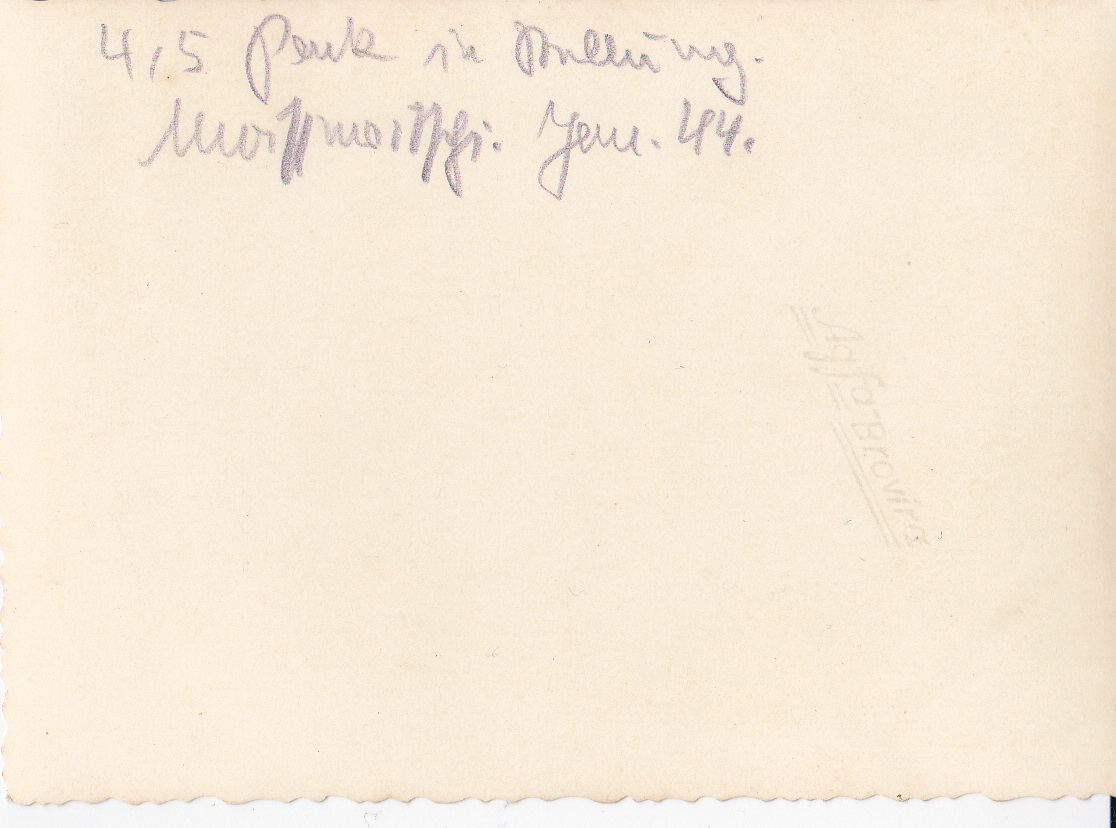 4,5 Pak in Stellung.
Jan. 44.
Agfa-Brovira